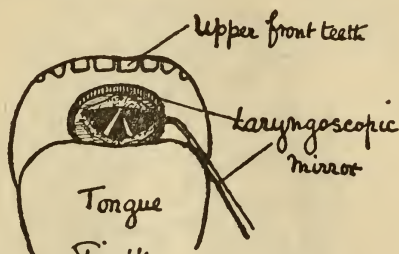 Upper front teeth
Laryngoscopic
Mirror
Tongue